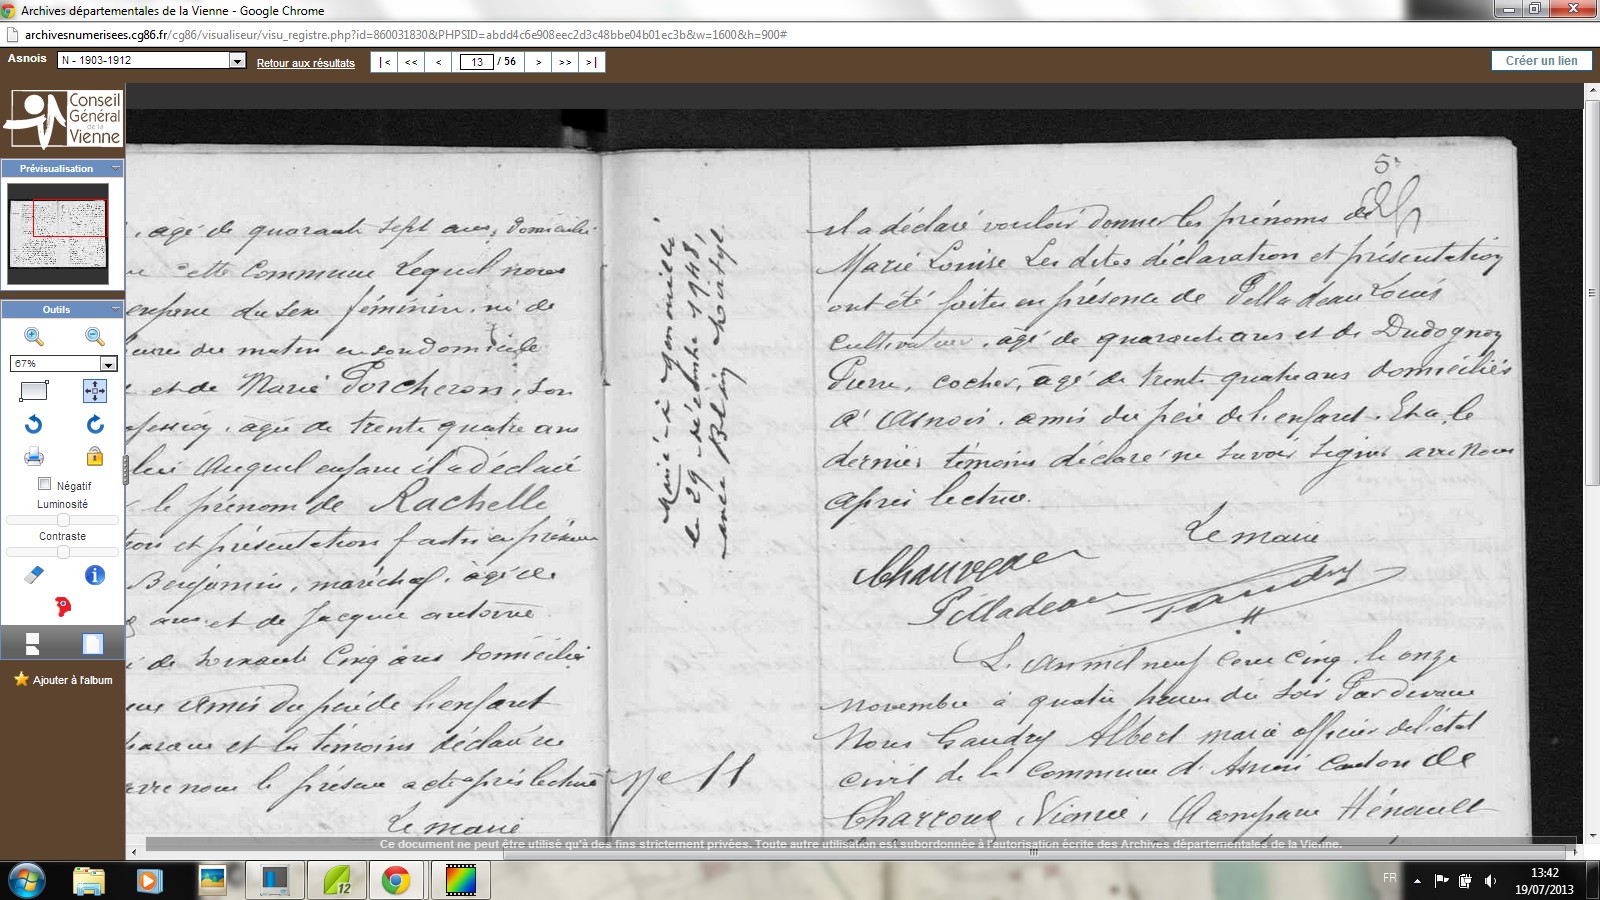 Archives départementales de la Vienne - Google Chrome
archivesnumerisees.cg86.fr/cg86/visualiseur/visu_registre.php?id=860031830&PHPSID=abdd4c6e908eec2d3c48bbe04b01ec3b&w=1600&h=900#
Asnois N - 1903-1912 Retour aux résultats |< << < 13 / 56 > >> >| Créer un lien
Conseil
Général
de la
Vienne
Prévisualisation
Outils
67%
Négatif
Luminosité
Contraste
Ajouter à l'album
, agé de quarante sept ans, domicilié
cette Commune Lequel nous
enfant du sexe féminin, né de
du matin en son domicile
et de Marie Porcheron, son
agée de trente quatre ans
lui Auquel enfant il a déclaré
le prénom de Rachelle
et présentation faites en présence
Benjamin, maréchal, âgé de
ans et de Jacques antoine
de soixante cinq ans domicilié
amis du père de l'enfant
et les témoins déclaré
avec nous le présent acte après lecture
Le maire
Marié à
le 29 décembre 1948,
avec
Nº 11
5
il a déclaré vouloir donner les prénoms de
Marie Louise Les dites déclaration et présentation
ont été faites en présence de Pelladeau Louis
cultivateur, âgé de quarante ans et de Dudognon
Pierre, cocher, âgé de trente quatre ans domiciliés
à Asnois, amis du père de l'enfant. Et a, le
dernier témoins déclaré ne savoir signer avec Nous
après lecture.
Le maire
Pelladeau
L'an mil neuf cent cinq, le onze
novembre à quatre heures du soir Par devant
Nous Gaudry Albert marie officier de l'état
civil de la commune d'Asnois Canton de
Charroux, Vienne, A comparu Hénault
Ce document ne peut être utilisé qu'à des fins strictement privées. Toute autre utilisation est subordonnée à l'autorisation écrite des Archives départementales de la Vienne.
12
FR
13:42
19/07/2013